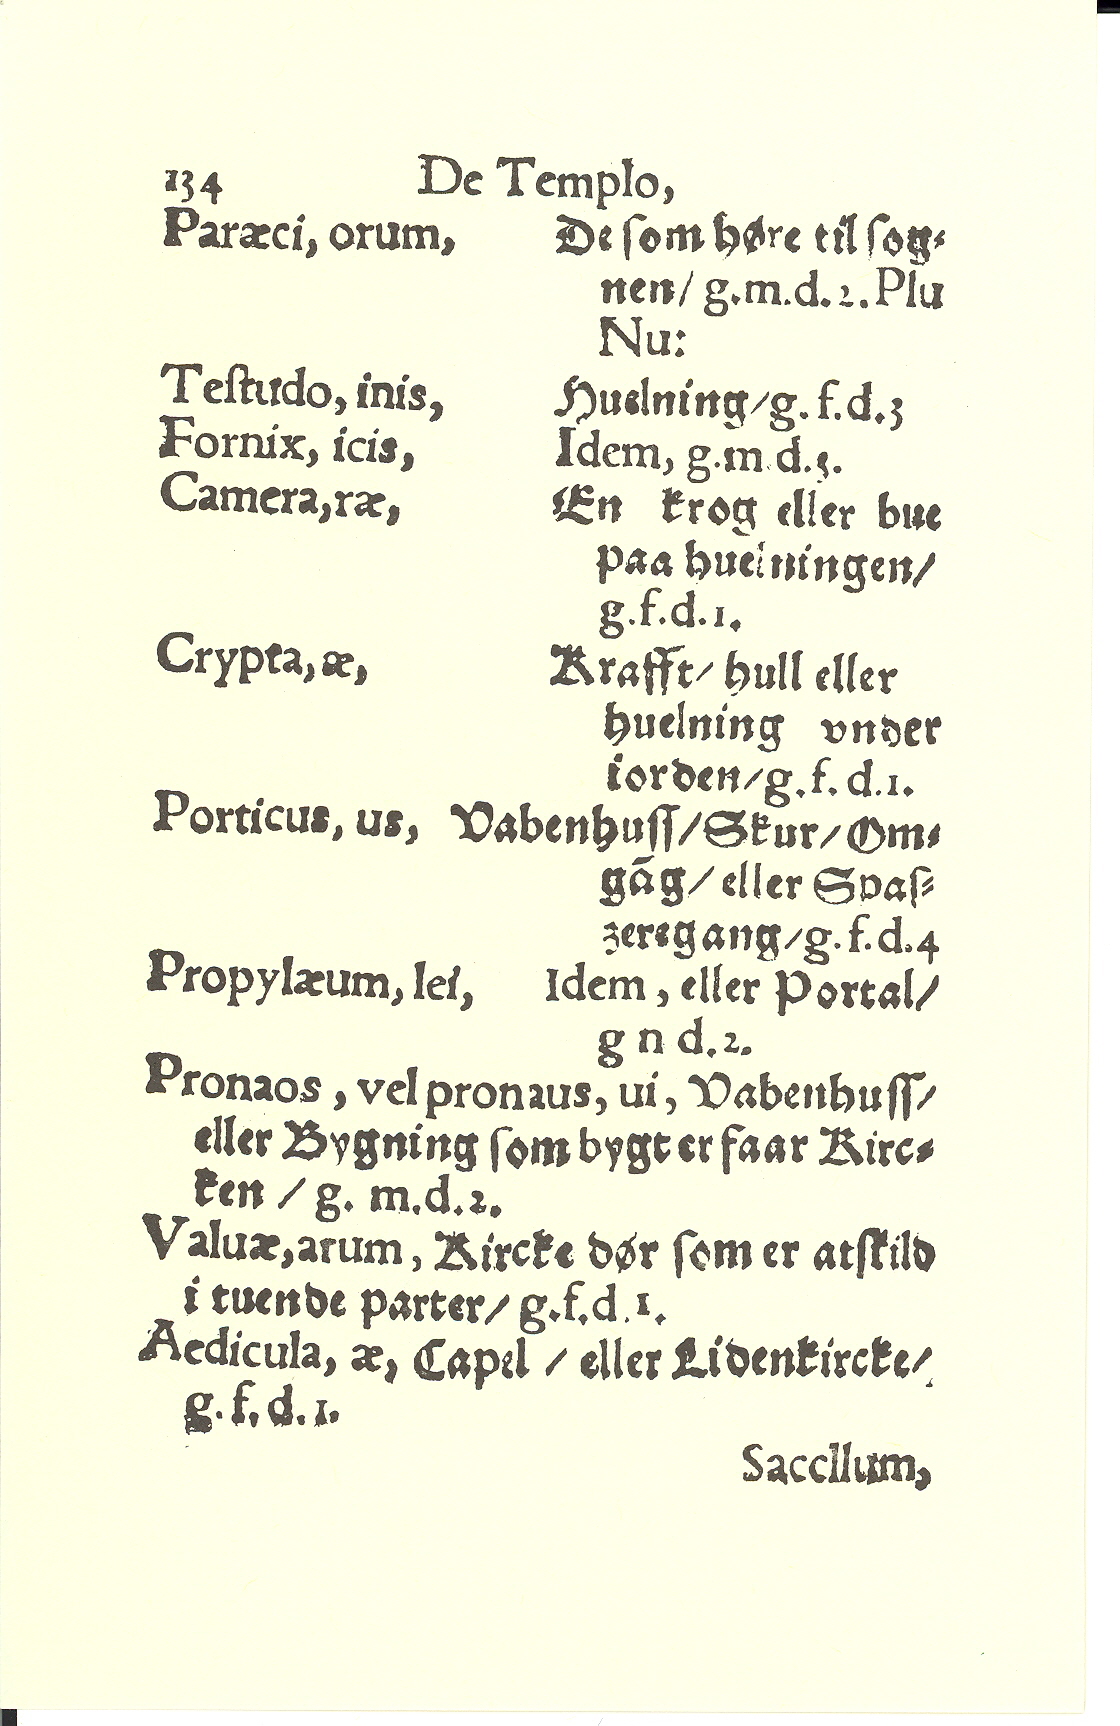 134 De Templo,
Paræci, orum, De ſom høre til ſog⸗
nen/ g.m.d.2.Plu
Nu:
Teſtudo, inis, Huelning/g.f.d.3
Fornix, icis, Idem, g.m.d.3.
Camera,ræ, En krog eller bue
paa huelningen/
g.f.d.1.
Crypta,æ, Krafft/ hull eller
huelning vnder
iorden/g.f.d.1.
Porticus, us, Vabenhuſſ/Skur/Om⸗
gāg/eller Spaſ⸗
zeregang/g.f.d.4
Propylæum, lei, Idem, eller Portal/
g n d.2.
Pronaos, vel pronaus, ui, Vabenhuſſ/
eller Bygning ſom bygt er faar Kirc⸗
ken / g. m.d.2.
Valuæ,arum, Kircke dør ſom er atſkild
i tuende parter/ g.f.d.1.
Aedicula, æ, Capel / eller Lidenkircke/
g.f.d.1.
Sacellum,